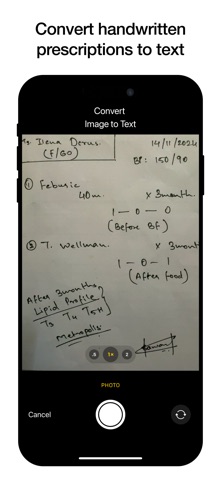 Convert handwritten
prescriptions to text
Convert
Image to Text
14/11/2024
(F/60)
BP: 150/90
① Feburic
40m. x 3month.
1 – 0 – 0
(Before BF)
② T. Wellman. x 3mont
1 – 0 – 1
(After food)
After 3months
Lipid Profile
T3 T4 TSH
Metropolis
.5 1x 3
PHOTO
Cancel